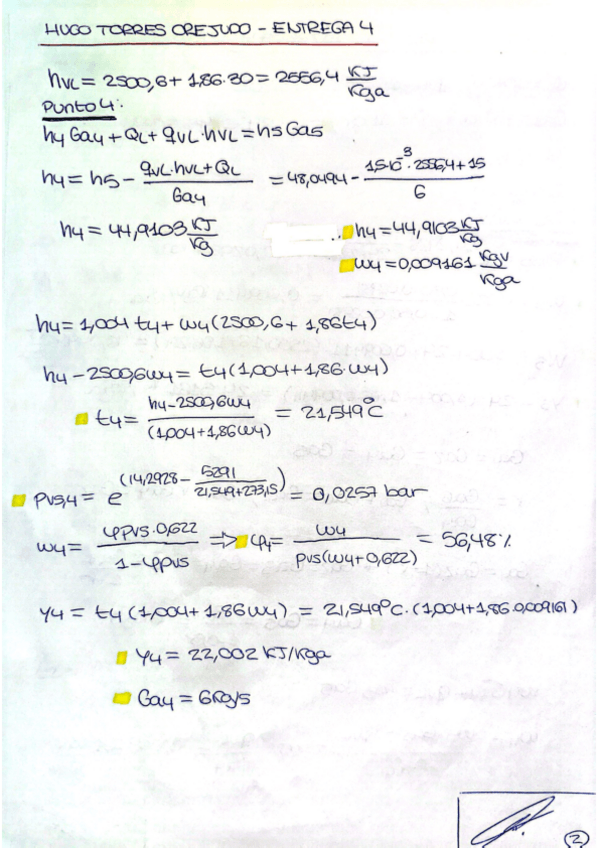 HUGO TORRES OREJUDO - ENTREGA 4
hVL = 2500,6 + 1,86·30 = 2556,4 KJ/Kga
Punto 4:
h4 Ga4 + QL + gVL·hVL = h5 Ga5
h4 = h5 - (gVL·hVL + QL)/Ga4 = 48,0494 - (1,5·10^-3·2556,4 + 15)/6
h4 = 44,9103 KJ/Kg
.. h4 = 44,9103 KJ/Kg
w4 = 0,009161 Kgv/Kga
h4 = 1,004 t4 + w4 (2500,6 + 1,86 t4)
h4 - 2500,6w4 = t4 (1,004 + 1,86·w4)
t4 = (h4 - 2500,6w4)/(1,004 + 1,86w4) = 21,549°C
Pvs,4 = e^(14,2928 - 5291/(21,549 + 273,15)) = 0,0257 bar
w4 = (φpvs·0,622)/(1 - φpvs) => φ4 = w4/(pvs(w4 + 0,622)) = 56,48%
Y4 = t4 (1,004 + 1,86w4) = 21,549°C·(1,004 + 1,86·0,009161)
Y4 = 22,002 KJ/Kga
Ga4 = 6Kg/s
2